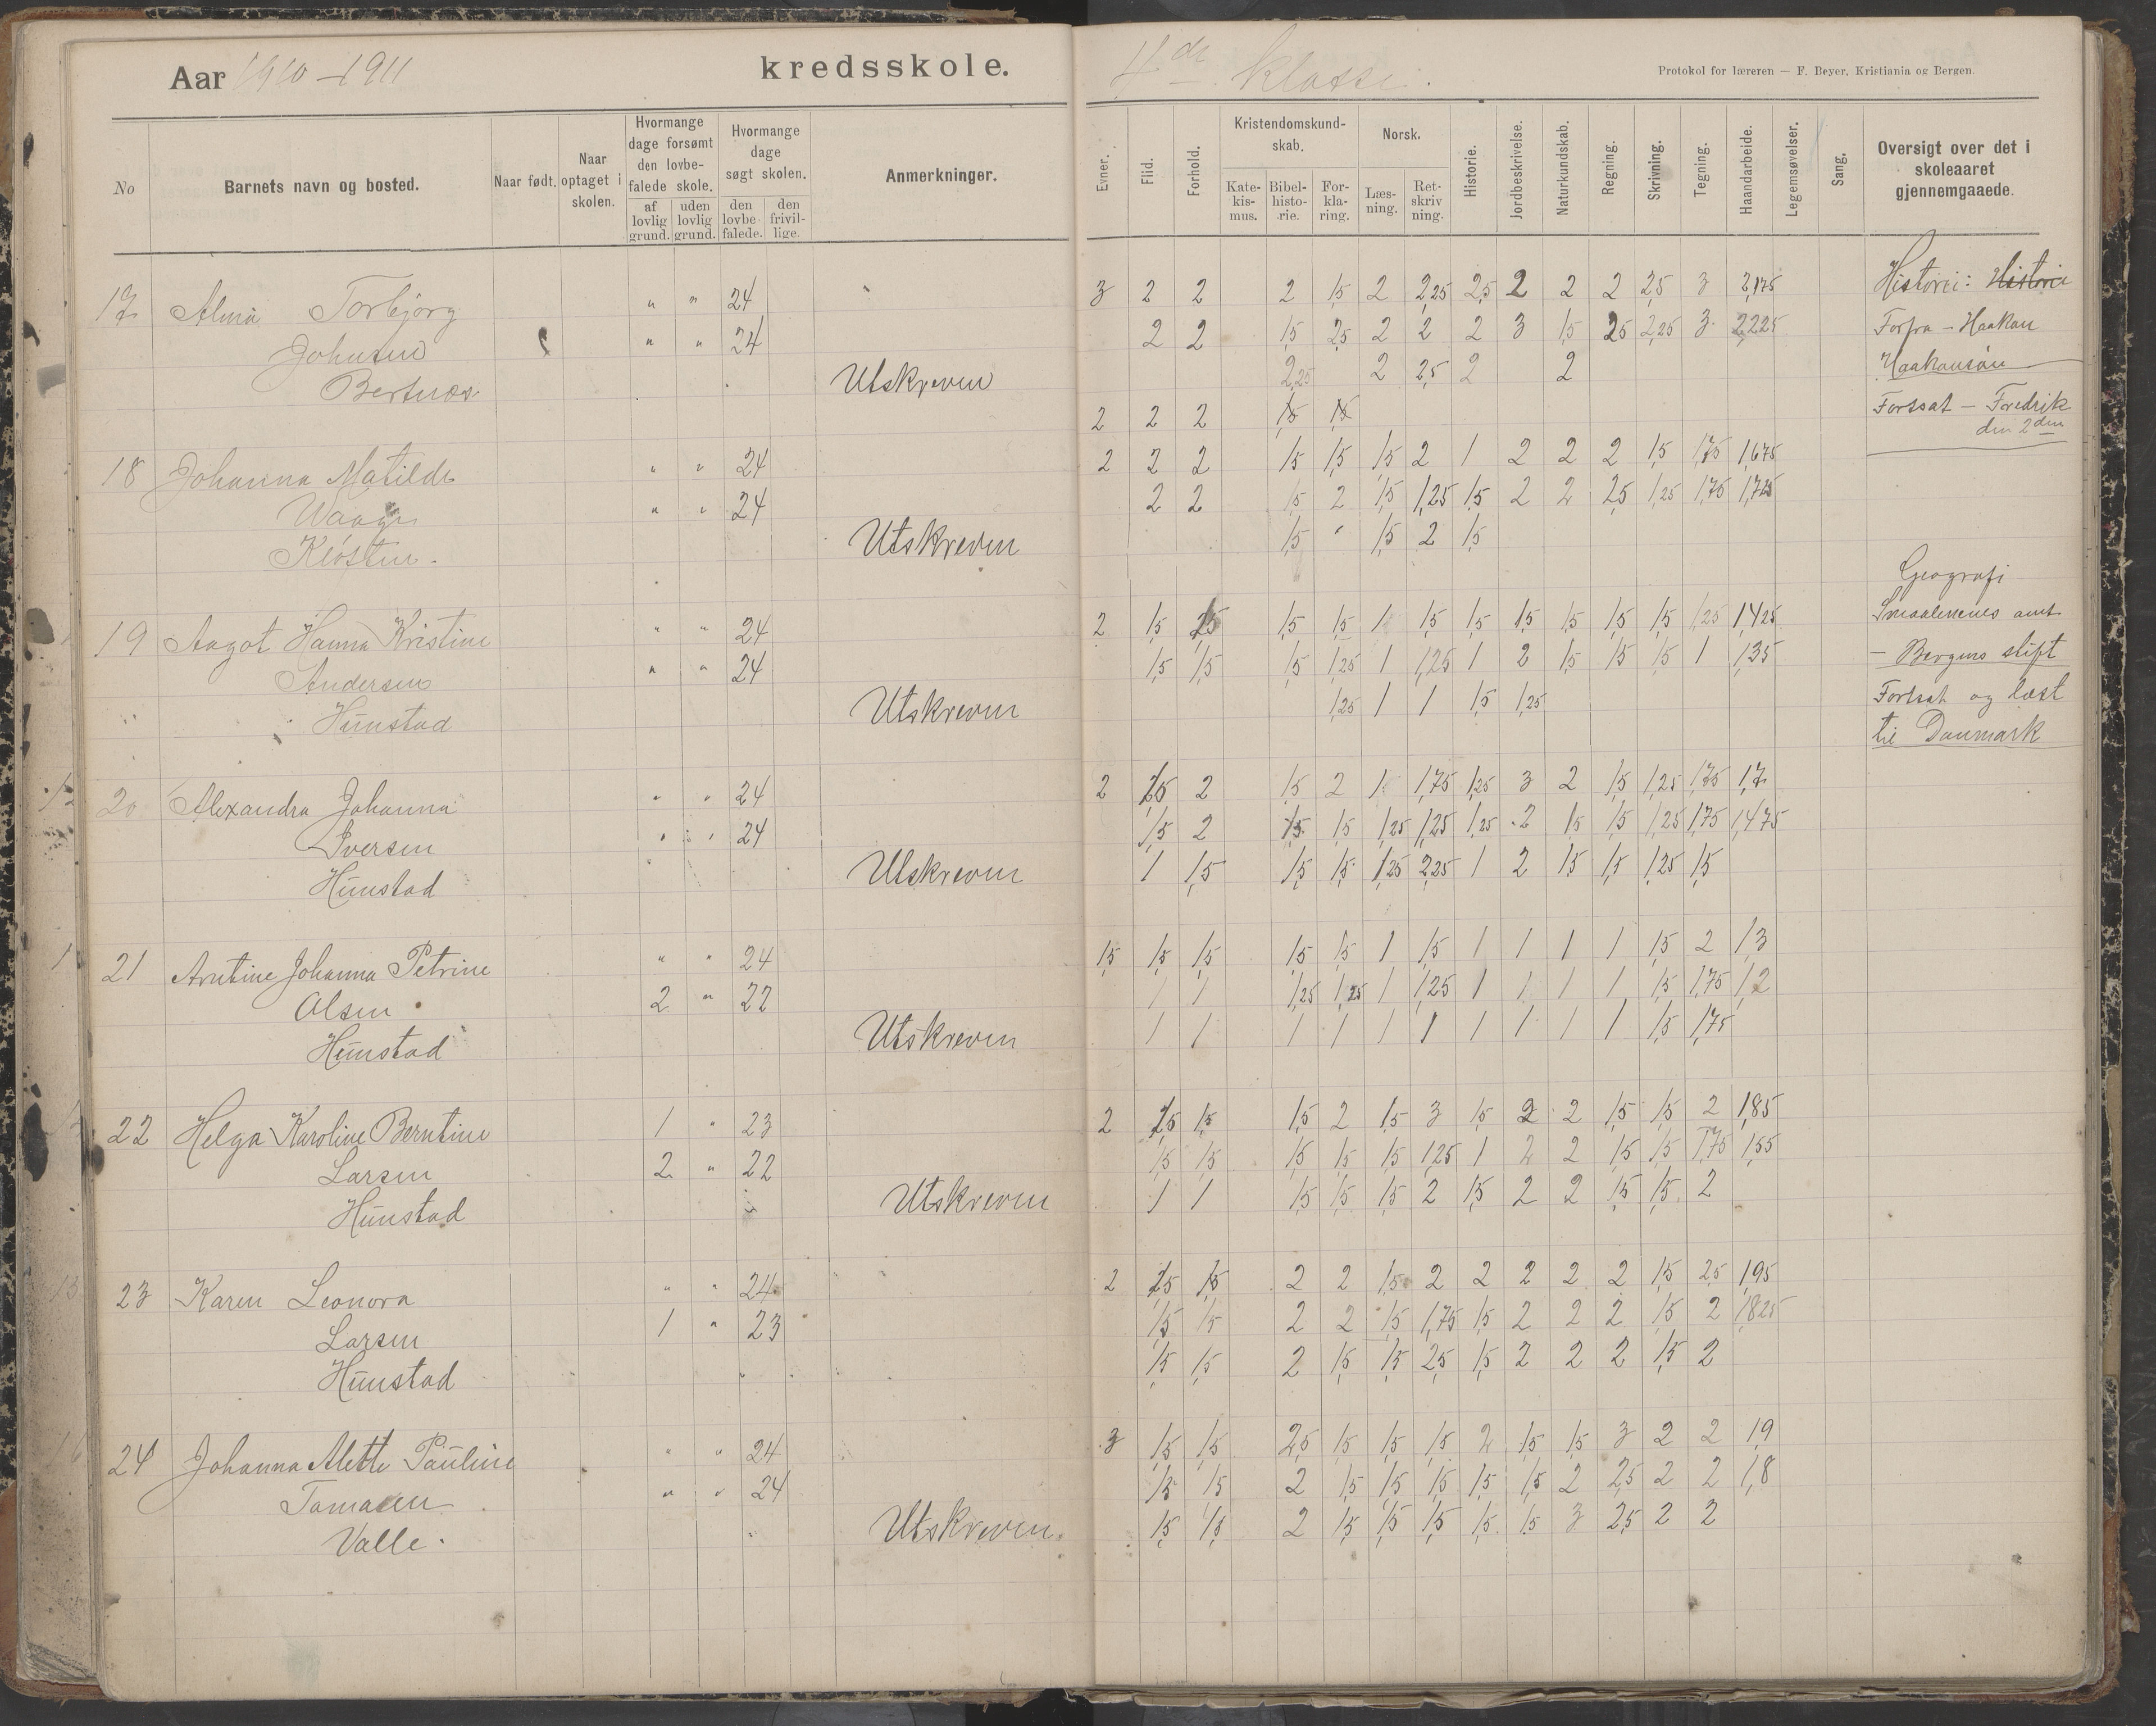 Aar 1910-1911 kredsskole.
4de klasse.
Protokol for læreren — F. Beyer, Kristiania og Bergen.
No
Barnets navn og bosted.
Naar født.
Naar optaget i skolen.
Hvormange dage forsømt den lovbe-falede skole.
af lovlig grund.
uden lovlig grund.
Hvormange dage søgt skolen.
den lovbe-falede.
den frivil-lige.
Anmerkninger.
Evner.
Flid.
Forhold.
Kristendomskund-skab.
Kate-kis-mus.
Bibel-histo-rie.
For-kla-ring.
Norsk.
Læs-ning.
Ret-skriv ning.
Historie.
Jordbeskrivelse.
Naturkundskab.
Regning.
Skrivning.
Tegning.
Haandarbeide.
Legemsøvelser.
Sang.
Oversigt over det i skoleaaret gjennemgaaede.
17 Alma Torbjørg " " 24 3 2 2 2 1,5 2 2,25 2,5 2 2 2 2,5 3 2,175
Johnsen " " 24 2 2 1,5 2,5 2 2 2 3 1,5 2,5 2,25 3 2,225
Bertnes Utskreven 2,25 2 2,5 2 2
2 2 2 1,5 1,5
18 Johanna Matilde " " 24 2 2 2 1,5 1,5 1,5 2 1 2 2 2 1,5 1,75 1,675
Waage " " 24 2 2 1,5 2 1,5 1,25 1,5 2 2 2,5 1,25 1,75 1,725
Kløsten. Utskreven 1,5 " 1,5 2 1,5
19 Aagot Hanna Kristine " " 24 2 1,5 2,5 1,5 1,5 1 1,5 1,5 1,5 1,5 1,5 1,5 1,25 1,425
Andersen " " 24 1,5 1,5 1,5 1,25 1 1,25 1 2 1,5 1,5 1,5 1 1,35
Hunstad Utskreven 1,25 1 1 1,5 1,25
20 Alexandra Johanna " " 24 2 1,5 2 1,5 2 1 1,75 1,25 3 2 1,5 1,25 1,75 1,7
Iversen " " 24 1,5 2 1,5 1,5 1,25 1,25 1,25 2 1,5 1,5 1,25 1,75 1,475
Hunstad Utskreven 1 1,5 1,5 1,5 1,25 2,25 1 2 1,5 1,5 1,25 1,5
21 Arntine Johanna Petrine " " 24 1,5 1,5 1,5 1,5 1,5 1 1,5 1 1 1 1 1,5 2 1,3
Olsen 2 " 22 1 1 1,25 1,25 1 1,25 1 1 1 1 1,5 1,75 1,2
Hunstad Utskreven 1 1 1 1 1 1 1 1 1 1 1,5 1,75
22 Helga Karoline Berntine 1 " 23 2 1,5 1,5 1,5 2 1,5 3 1,5 2 2 1,5 1,5 2 1,85
Larsen 2 " 22 1,5 1,5 1,5 1,5 1,5 1,25 1 2 2 1,5 1,5 1,75 1,55
Hunstad Utskreven 1 1 1,5 1,5 1,5 2 1,5 2 2 1,5 1,5 2
23 Karen Leonora " " 24 2 1,5 1,5 2 2 1,5 2 2 2 2 2 1,5 2,5 1,95
Larsen 1 " 23 1,5 1,5 2 2 1,5 1,75 1,5 2 2 2 1,5 2 1,825
Hunstad 1,5 1,5 2 1,5 1,5 2,5 1,5 2 2 2 1,5 2
24 Johanna Alette Pauline " " 24 3 1,5 1,5 2,5 1,5 1,5 1,5 2 1,5 1,5 3 2 2 1,9
Tomasen " " 24 1,5 1,5 2 1,5 1,5 1,5 1,5 1,5 2 2,5 2 2 1,8
Valle. Utskreven. 1,5 1,5 2 1,5 1,5 1,5 1,5 1,5 3 2,5 2 2
Historie: Historie
Forfra — Haakan
Haakansøn
Fortsat — Fredrik
den 2den
Geografi
Smaalenenes amt
— Bergens stift
Fortsat og læst
til Danmark